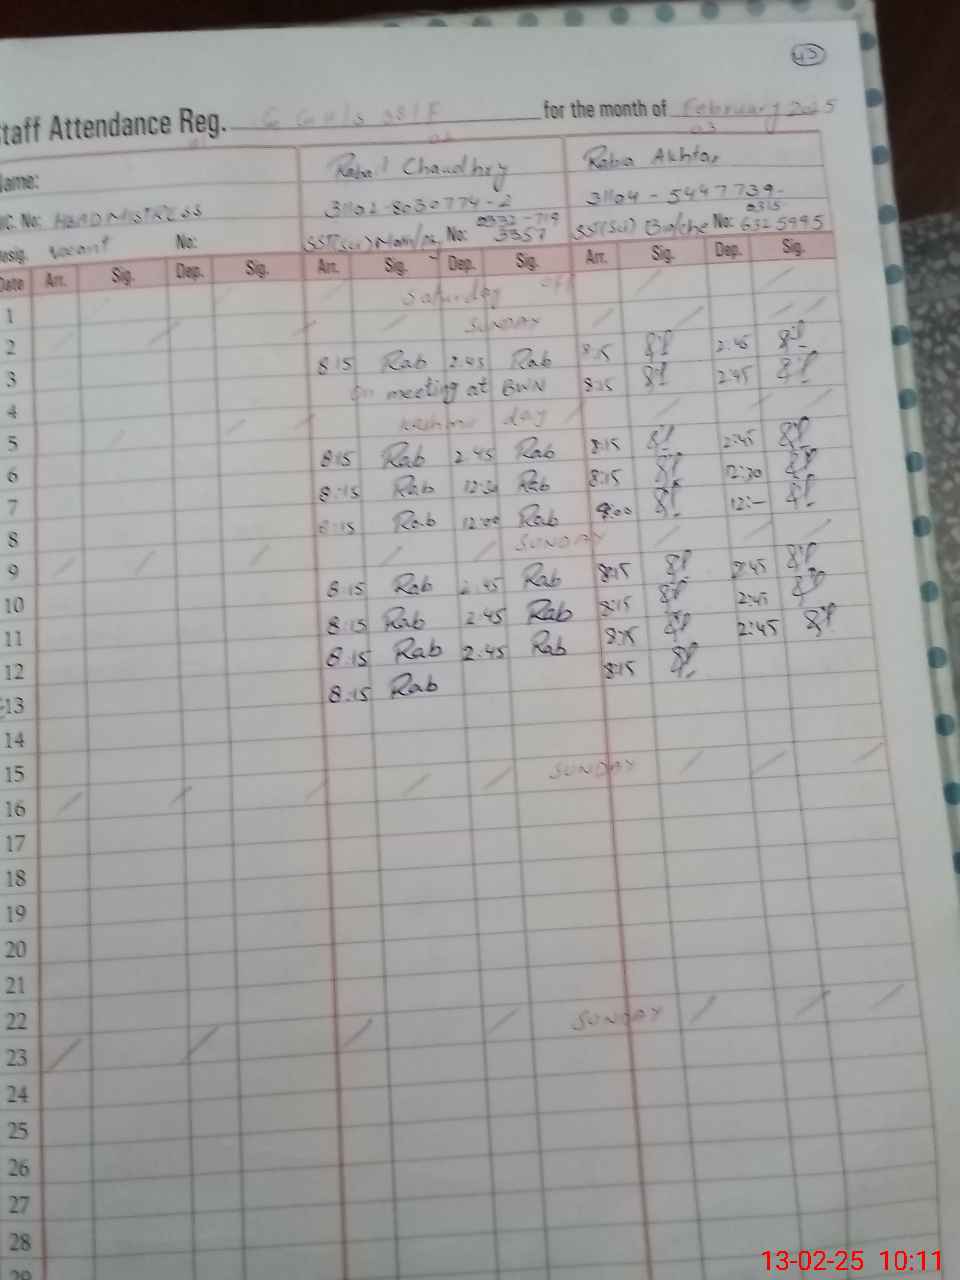 45
taff Attendance Reg. for the month of February 2025
02 03
Name: Rahat Chaudhry Rabia Akhtar
I.C. No: HEADMISTRESS 31102-8030774-2 31104-5447739-
Desig. Vacant No: SST(Sci) No: 0332-719 3357 SST(Sci) Bio/che No: 0315 6325995
Date Arr. Sig. Dep. Sig. Arr. Sig. Dep. Sig. Arr. Sig. Dep. Sig.
1 Saturday off
2 SUNDAY
3 8:15 Rab 2:45 Rab 8:15 2:45
4 on meeting at BWN 8:15 2:45
5 day
6 8:15 Rab 2:45 Rab 8:15 2:45
7 8:15 Rab 12:30 Rab 8:15 12:30
8 8:15 Rab 12:00 Rab 8:00 12:-
9 SUNDAY
10 8:15 Rab 2:45 Rab 8:15 2:45
11 8:15 Rab 2:45 Rab 8:15 2:45
12 8:15 Rab 2:45 Rab 8:15 2:45
13 8:15 Rab 8:15
14
15
16 SUNDAY
17
18
19
20
21
22
23 SUNDAY
24
25
26
27
28
29
13-02-25 10:11